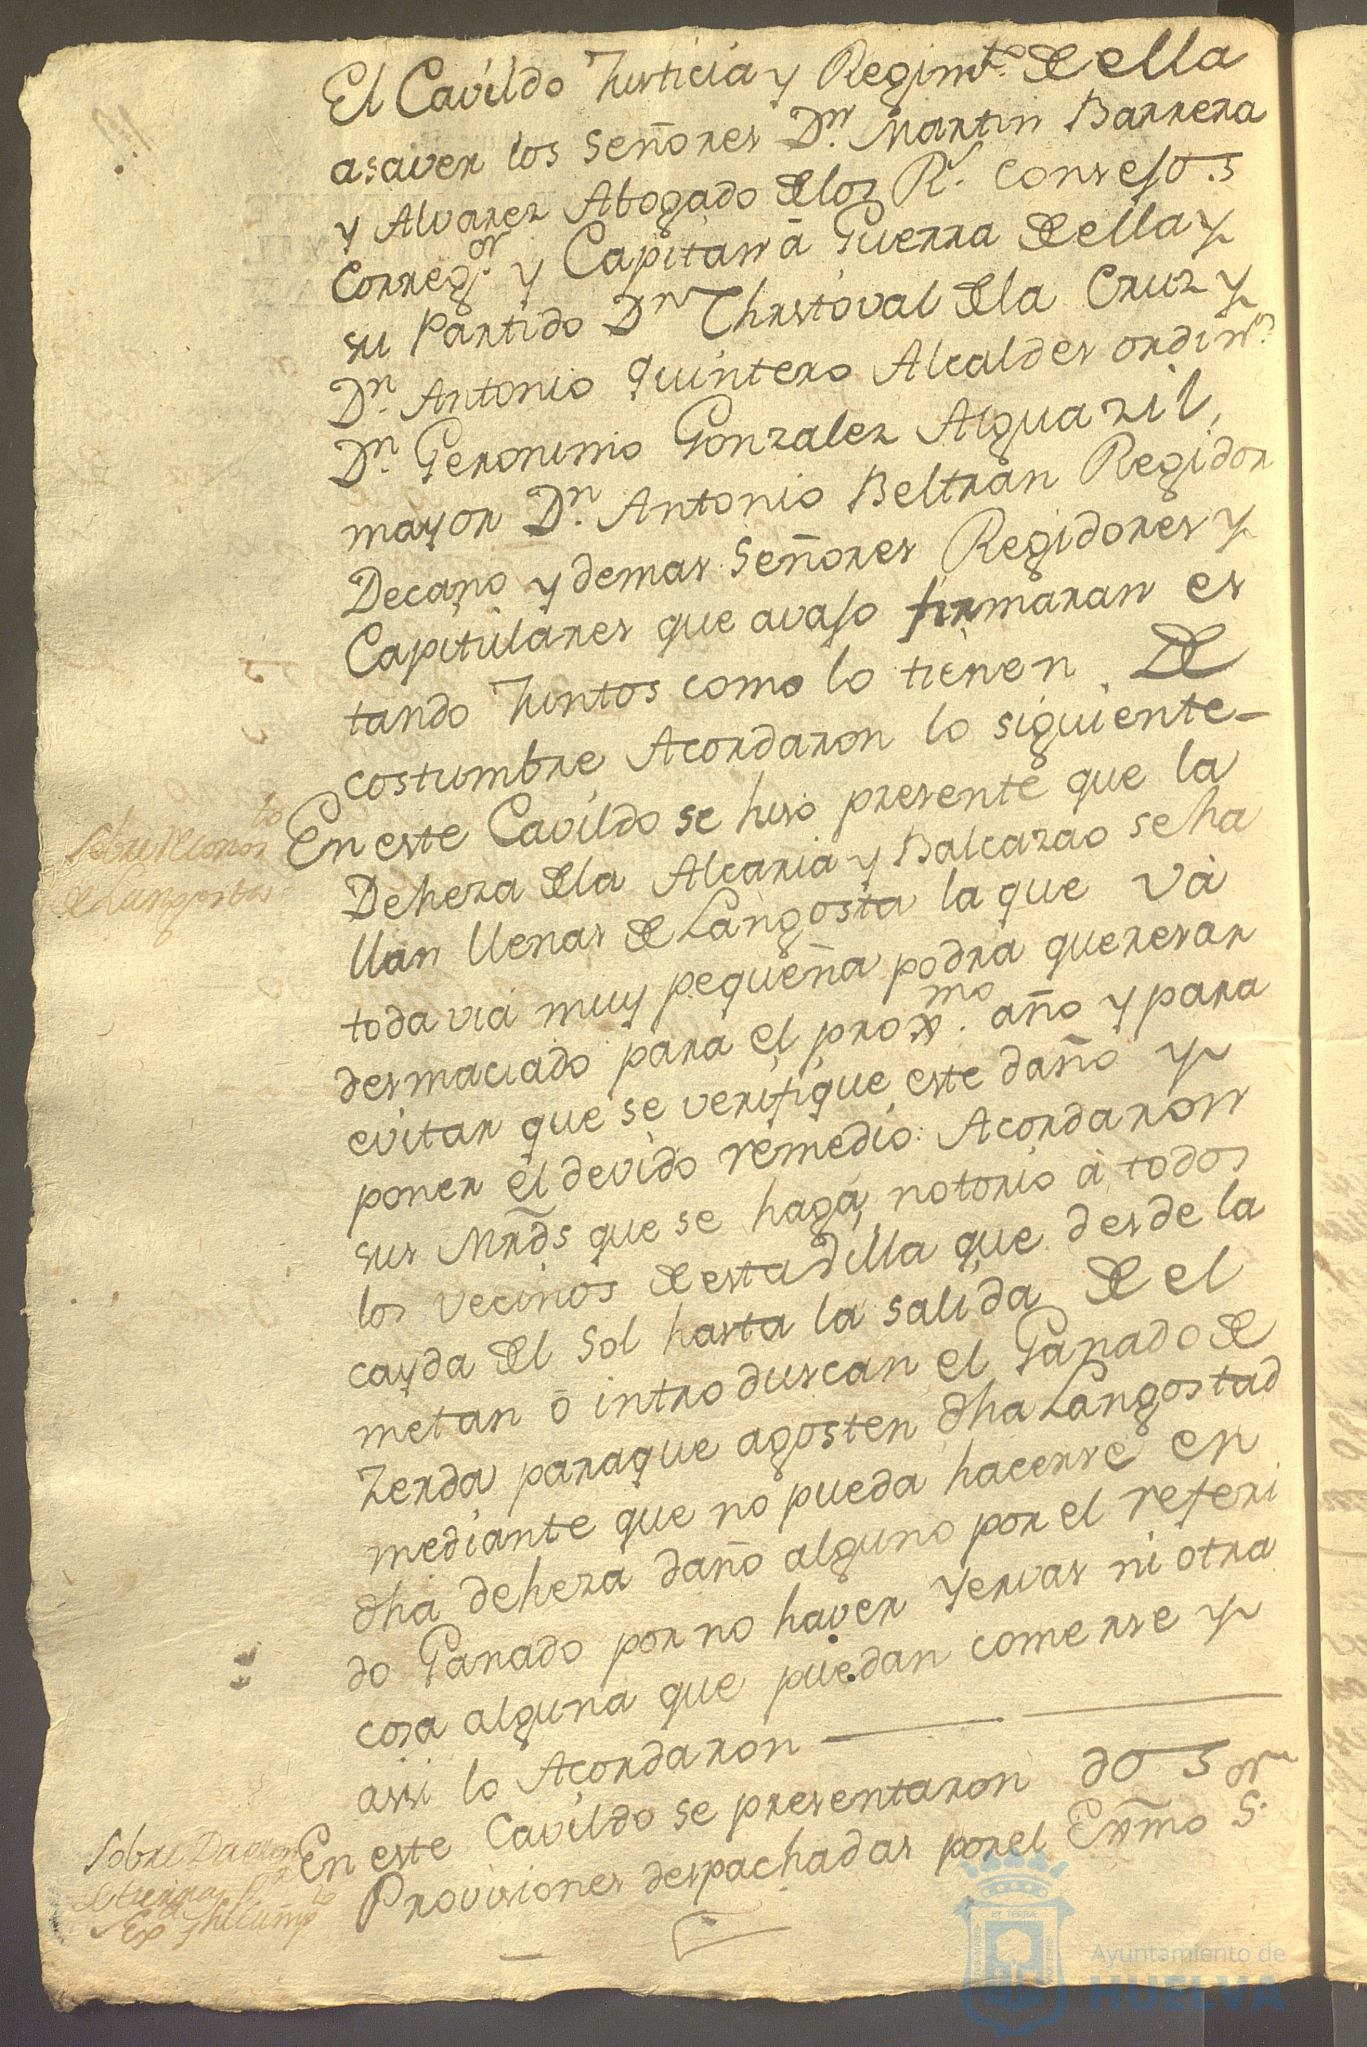 El Cavildo Justicia y Regimto. de ella
asaver los Señores Dn. Martin Barrera
y Alvarez Abogado de los Rs. Consejos
Corregor. y Capitan â Guerra de ella y
su Partido Dn Christoval de la Cruz y
Dn. Antonio Quintero Alcaldes ordins.
Dn. Geronimo Gonzalez Alguazil,
mayor Dn. Antonio Beltran Regidor
Decano y demas Señores Regidores y
Capitulares que avajo firmaran es
tando Juntos como lo tienen de
costumbre Acordaron lo siguiente
Sobre
de Langosta
En este Cavildo se hiso presente que la
Deheza de la Alcaria y Balcazao se ha
llan llenas de Langosta la que và
toda via muy pequeña podrà queresar
desmaciado para el proxmo. año y para
evitar que se verifique este daño y
poner el devido remedio: Acordaron
sus Mrds que se haga notorio à todos
los vecinos de esta Villa que desde la
cayda del Sol hasta la salida de el
metan ô introduscan el Ganado de
Zerda para que agosten dha Langosta
mediante que no pueda hacerse en
dha deheza daño alguno por el referi
do Ganado por no haver Yervas ni otra
cosa alguna que puedan comerse y
assi lo Acordaron
Sobre
En este Cavildo se presentaron dos
Provisiones despachadas por el Exmo Sor.
Ayuntamiento de
HUELVA